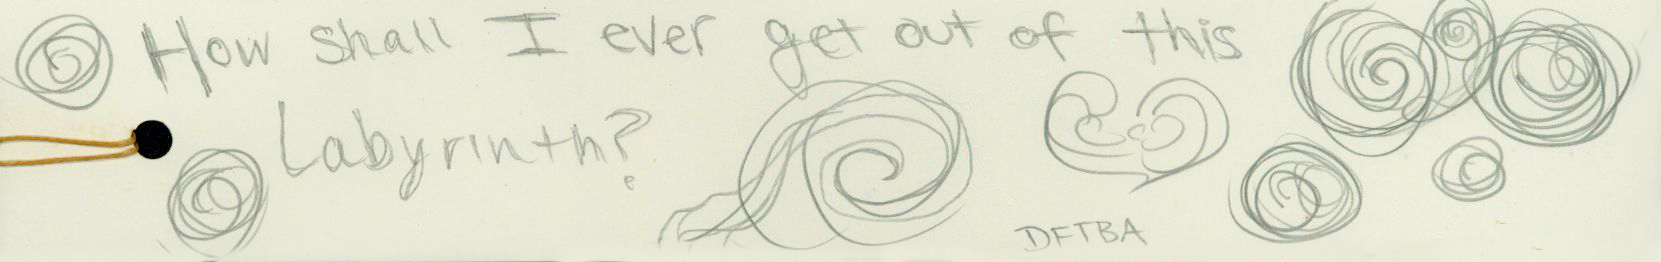 How shall I ever get out of this
Labyrinth?
DFTBA